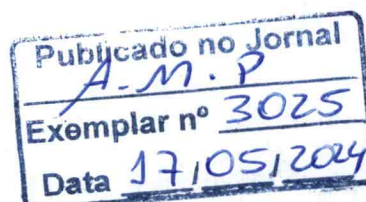 Publicado no Jornal
A.M.P
Exemplar nº 3025
Data 17/05/2024